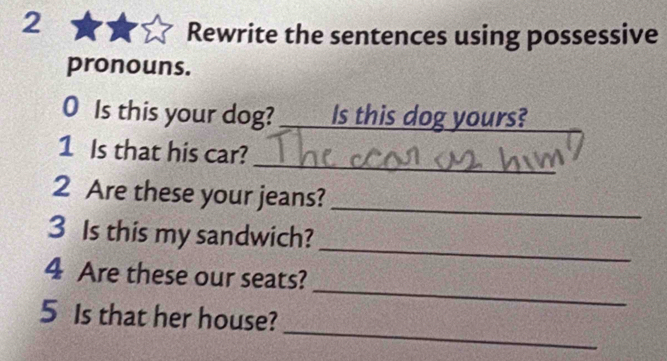 2 ★★☆ Rewrite the sentences using possessive
pronouns.
0 Is this your dog? Is this dog yours?
1 Is that his car? The car as him?
2 Are these your jeans?
3 Is this my sandwich?
4 Are these our seats?
5 Is that her house?